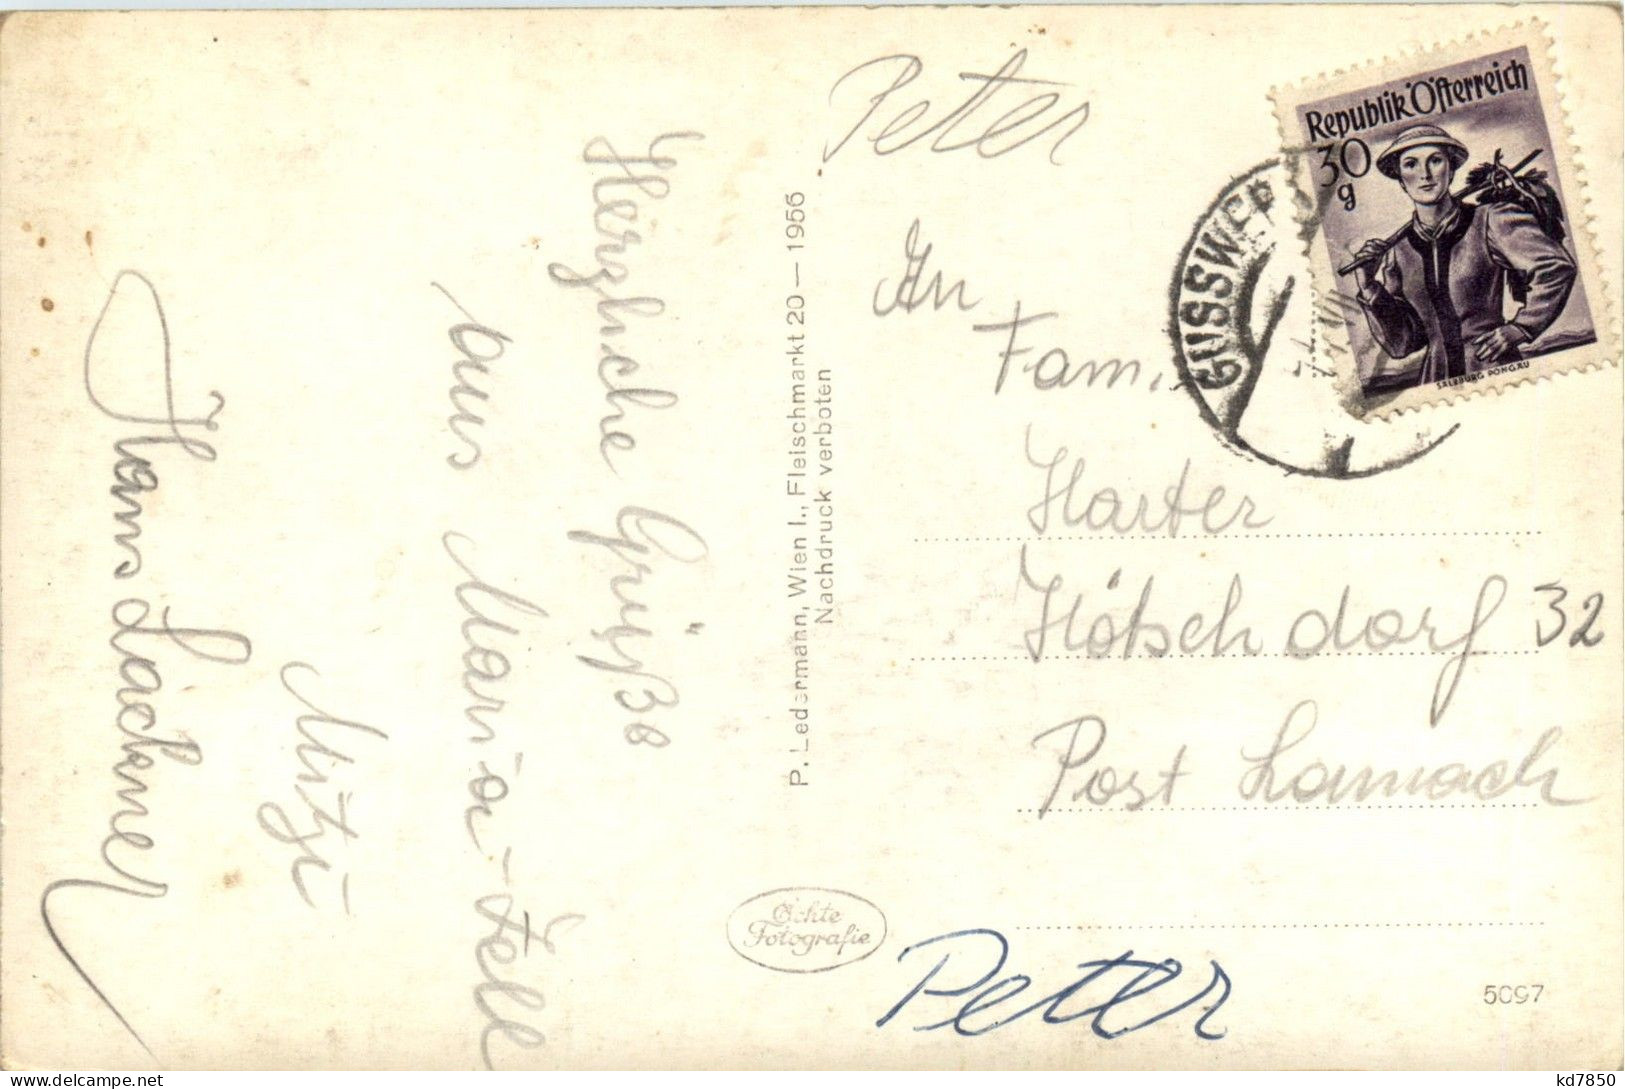 Herzliche Grüße
aus Maria-Zell
Mitzi
Hans Lackner
P. Ledermann, Wien I., Fleischmarkt 20—1956
Nachdruck verboten
Echte
Fotografie
Peter
Republik Österreich
30
g
SALZBURG PONGAU
GUSSWER
An
Fam.
Harter
Hötschdorf 32
Post Lannach
Peter
5097
kd7850